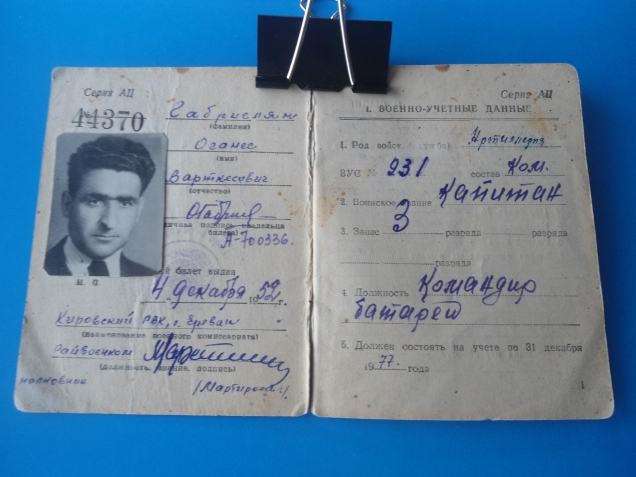 Серия АЦ
№ 44370
Габриелян
(фамилия)
Оганес
(имя)
Варткесович
(отчество)
(личная подпись владельца
билета)
А-700336.
й билет выдан
М. П.
4 декабря 1952 г.
Кировский РВК, г. Ереван
(наименование военного комиссариата)
Райвоенком
(должность, звание, подпись)
полковник
/Мартиросян/
Серия АЦ
I. ВОЕННО-УЧЕТНЫЕ ДАННЫЕ
1. Род войск Артиллерия
ВУС № 931 состава Ком.
2. Воинское звание Капитан
3. Запас 3 разряда разряда
разряда
4. Должность Командир
батареи
5. Должен состоять на учете по 31 декабря
1977 года
1